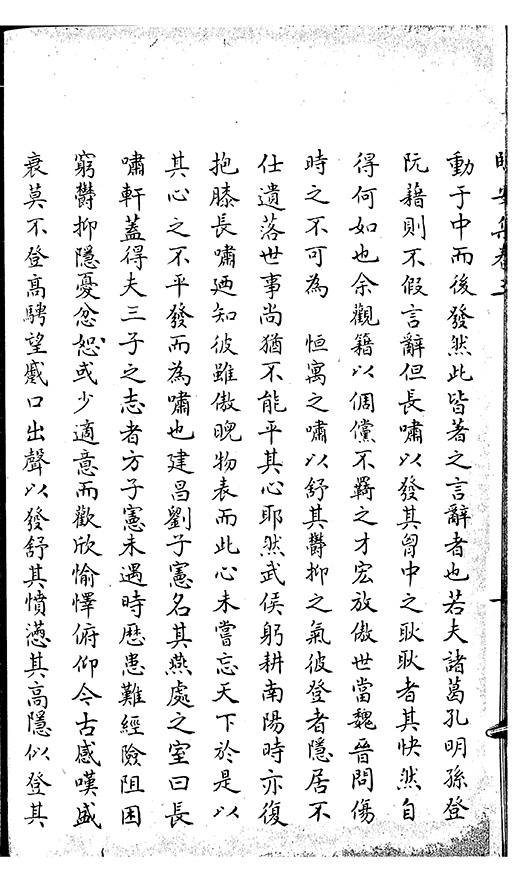 動于中而後發然此皆著之言辭者也若夫諸葛孔明孫登
阮籍則不假言辭但長嘯以發其胷中之耿耿者其快然自
得何如也余觀籍以倜儻不羇之才宏放傲世當魏晉間傷
時之不可為 恒寓之嘯以舒其鬱抑之氣彼登者隱居不
仕遺落世事尚猶不能平其心耶然武侯躬耕南陽時亦復
抱膝長嘯廼知彼雖傲睨物表而此心未嘗忘天下於是以
其心之不平發而為嘯也建昌劉子憲名其燕處之室曰長
嘯軒蓋得夫三子之志者方子憲未遇時歷患難經險阻困
窮鬱抑隱憂忿恕或少適意而歡欣愉懌俯仰今古感嘆盛
衰莫不登高騁望蹙口出聲以發舒其憤懣其高隱似登其